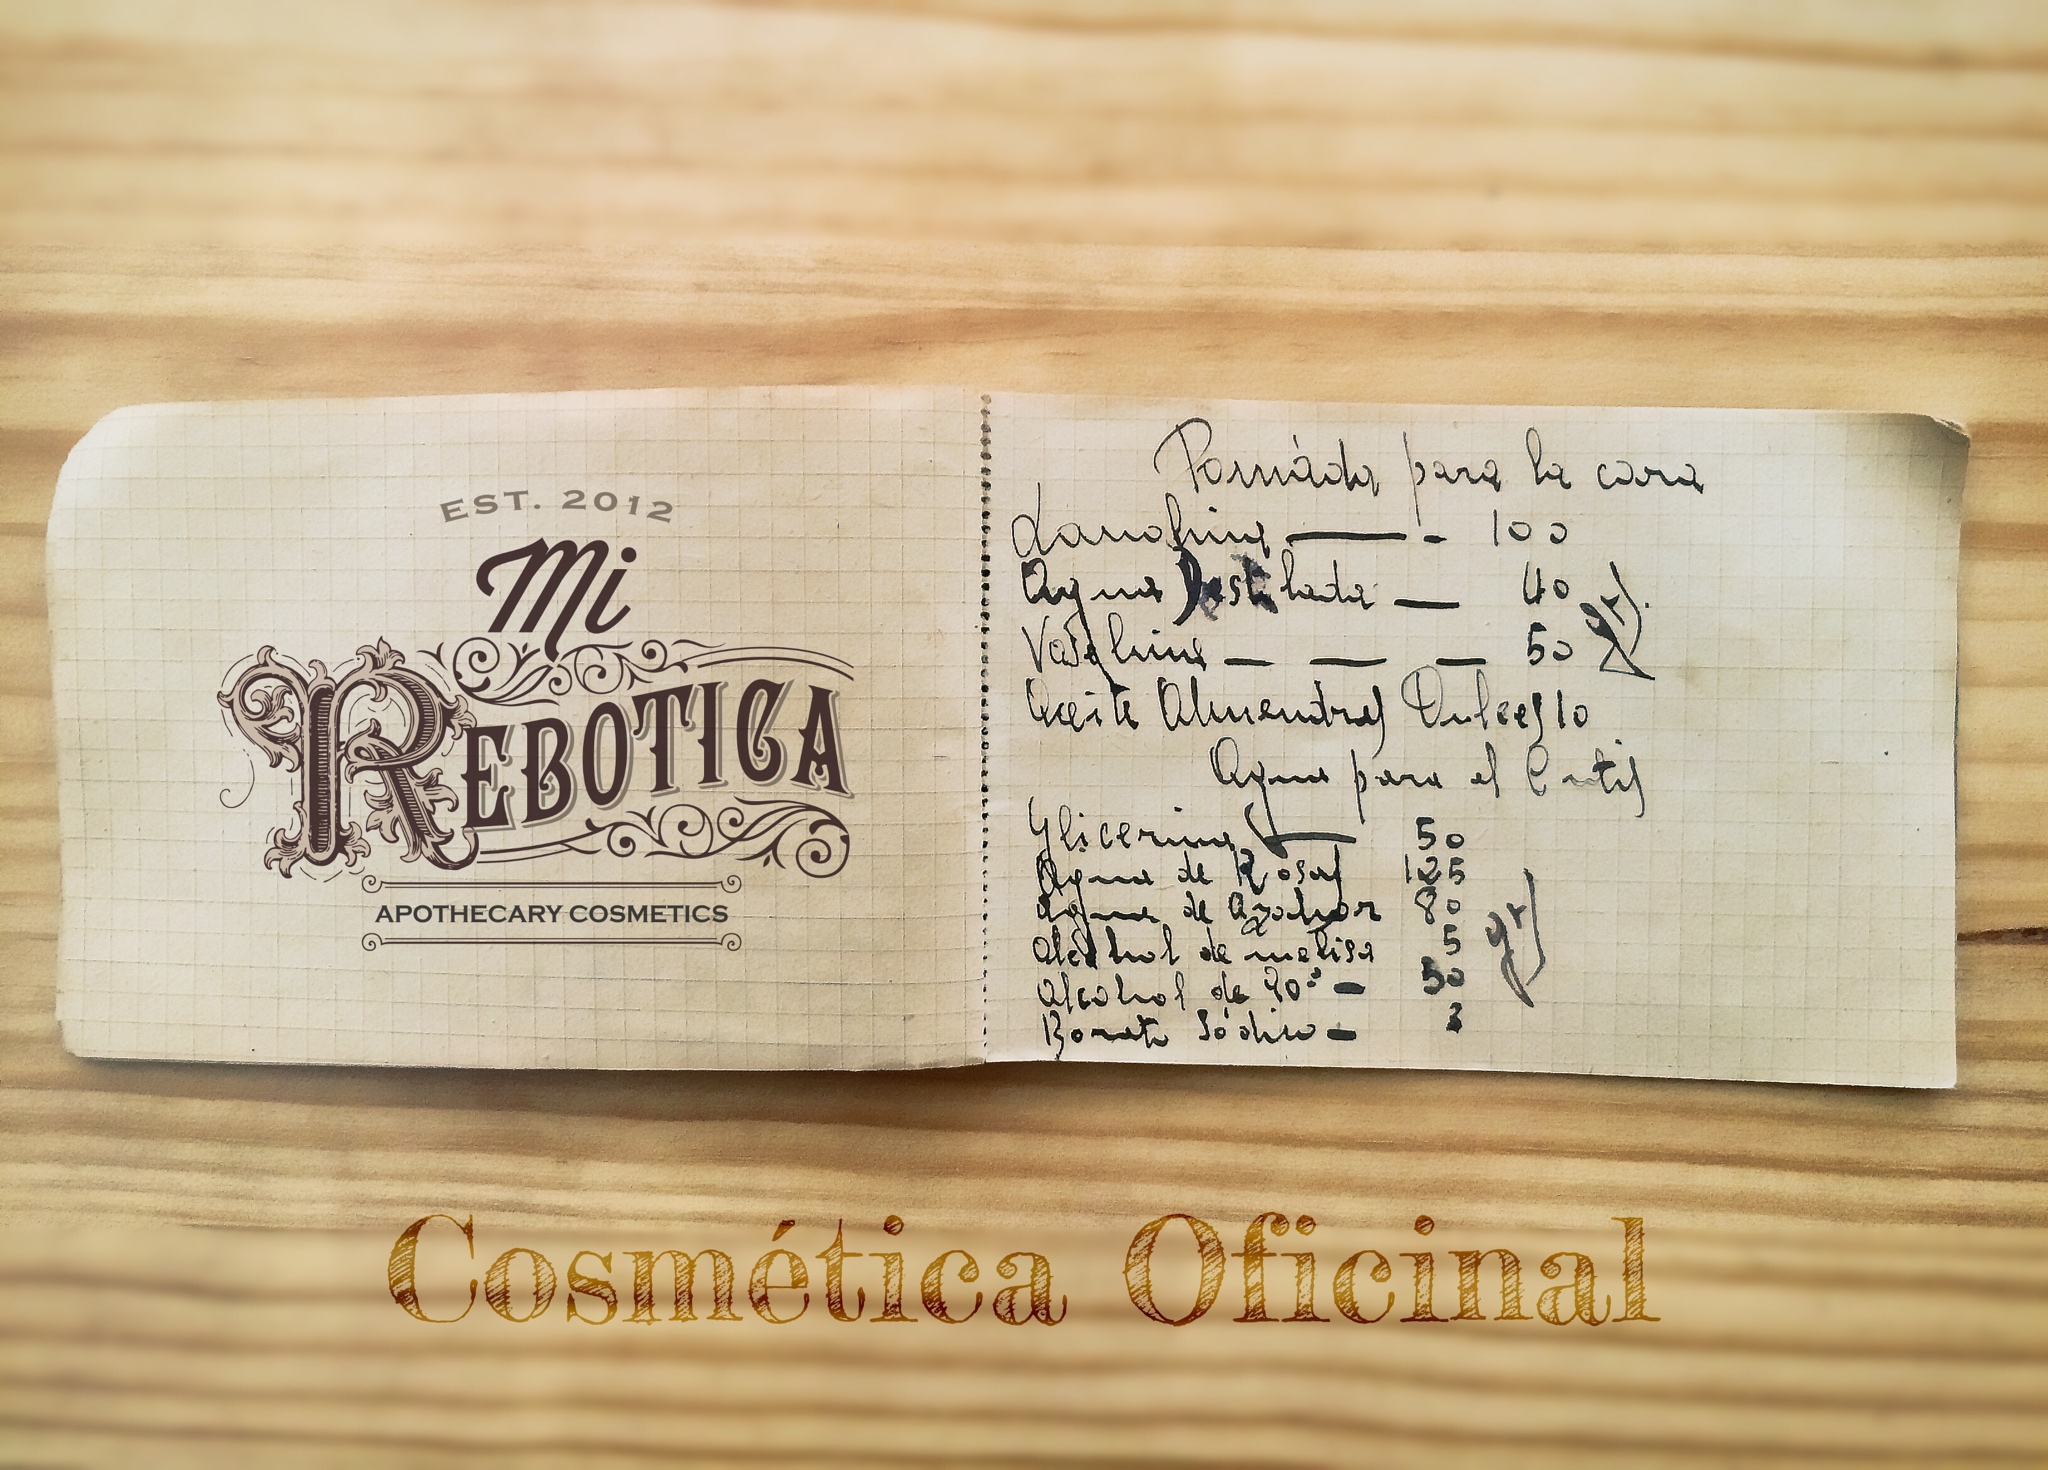 EST. 2012
Mi
REBOTICA
APOTHECARY COSMETICS
Pomáda para la cara
Lanolina — - 100
Agua Destilada — 40
Vaselina — — — 50
gr
Aceite Almendras Dulces 10
Agua para el Cutis
Glicerina — 50
Agua de Rosas 125
Agua de Azahar 80
gr
Alcohol de melisa 5
Alcohol de 90º — 50
Borato Sódico —
Cosmética Oficinal